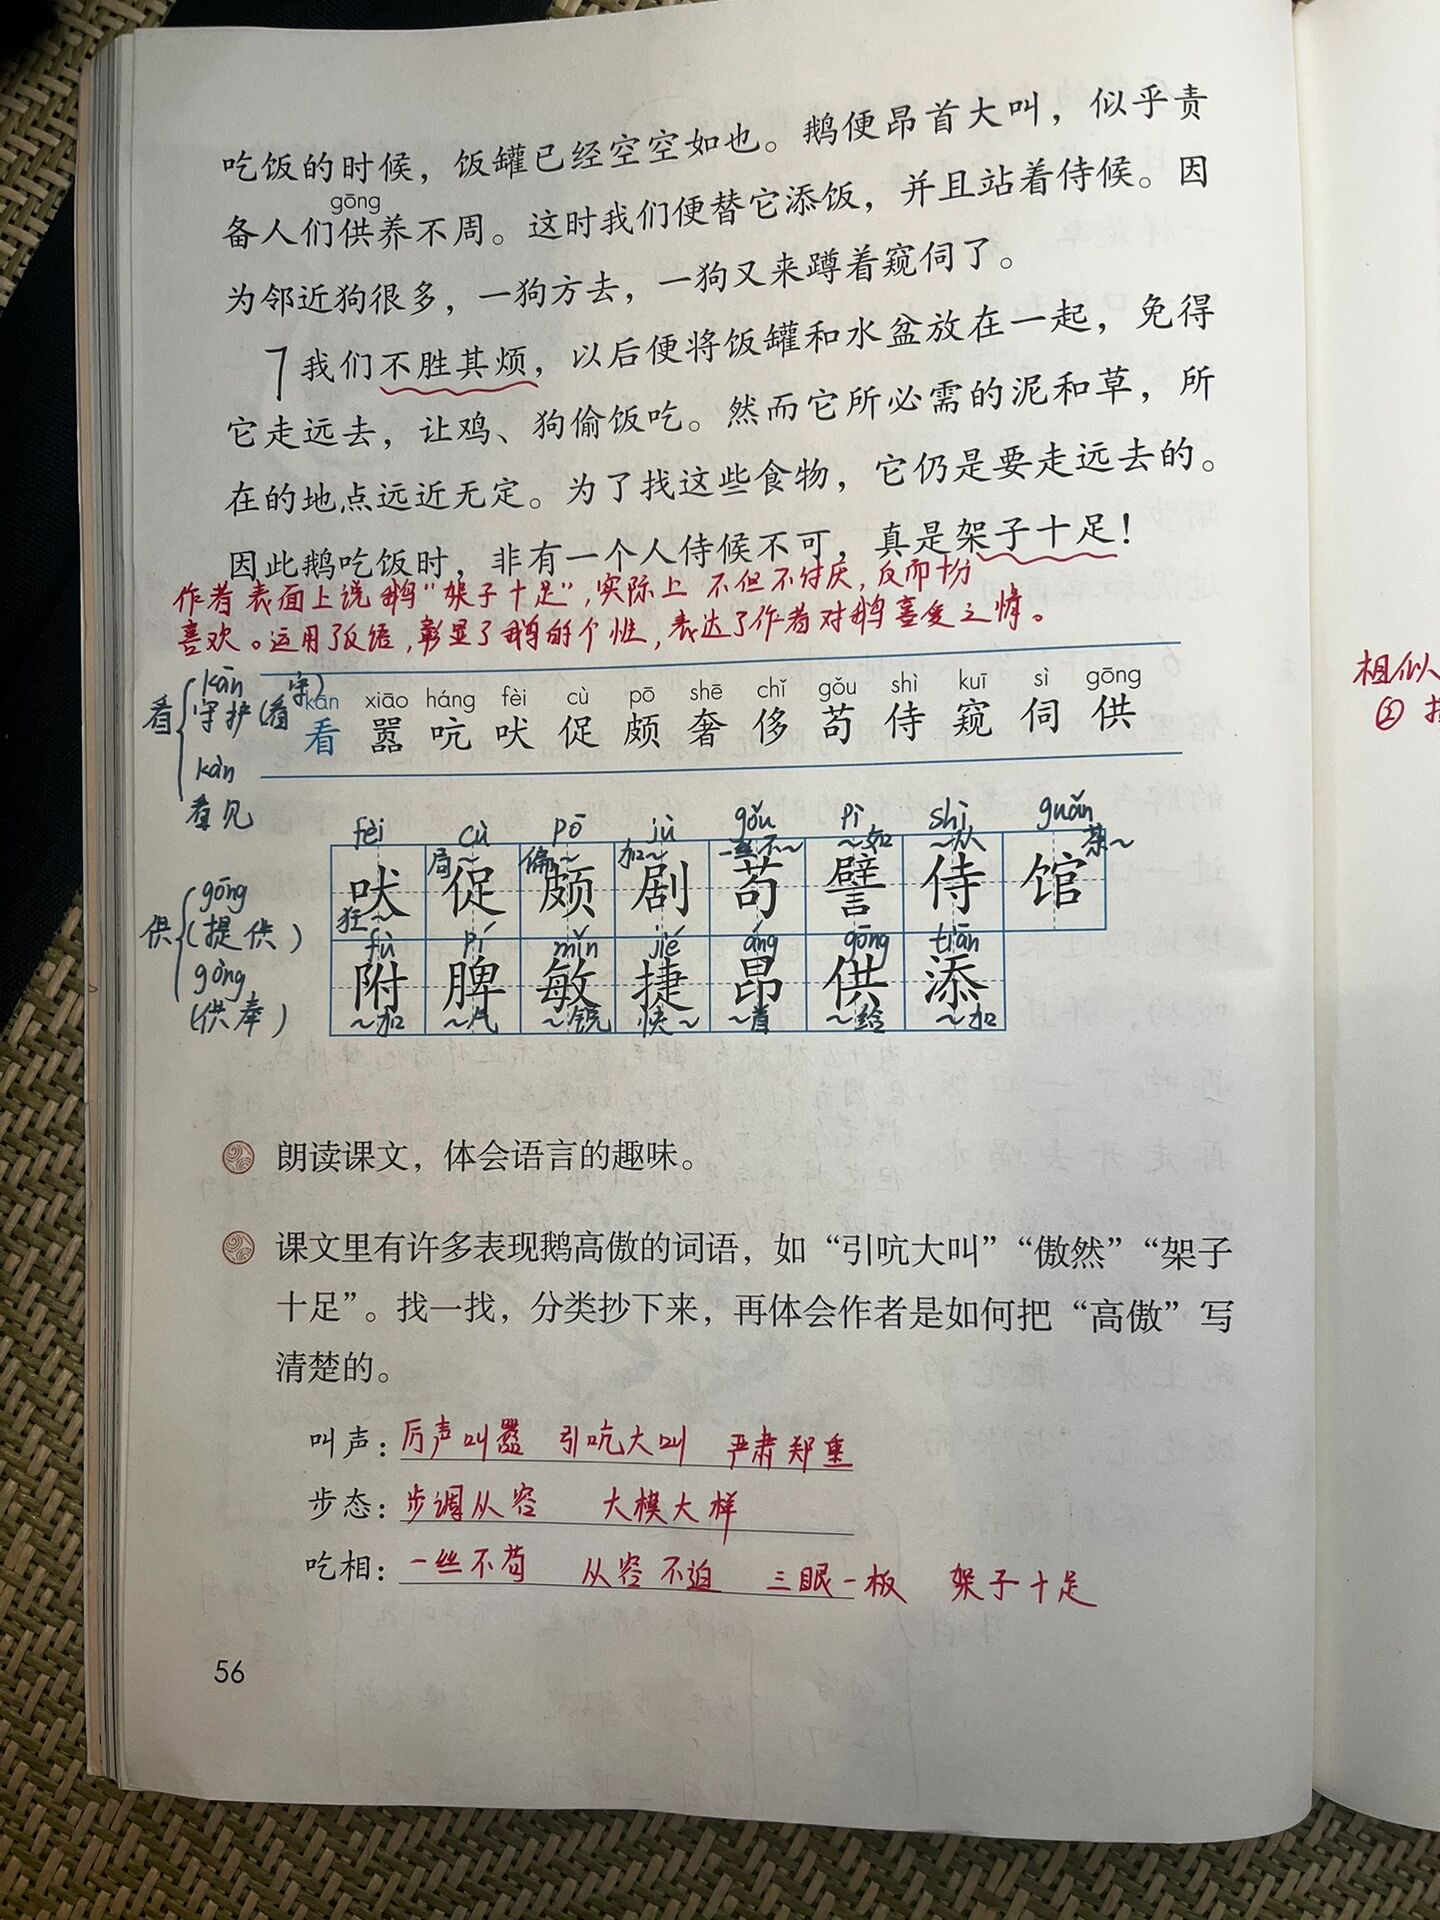 吃饭的时候，饭罐已经空空如也。鹅便昂首大叫，似乎责
gōng
备人们供养不周。这时我们便替它添饭，并且站着侍候。因
为邻近狗很多，一狗方去，一狗又来蹲着窥伺了。
7我们不胜其烦，以后便将饭罐和水盆放在一起，免得
它走远去，让鸡、狗偷饭吃。然而它所必需的泥和草，所
在的地点远近无定。为了找这些食物，它仍是要走远去的。
因此鹅吃饭时，非有一个人侍候不可，真是架子十足！
作者表面上说鹅“架子十足”，实际上不但不讨厌，反而十分
喜欢。运用了反语，彰显了鹅的个性，表达了作者对鹅喜爱之情。
看
kān
守护(看守)
kàn
看见
kān xiāo háng fèi cù pō shē chǐ gǒu shì kuī sì gōng
看 嚣 吭 吠 促 颇 奢 侈 苟 侍 窥 伺 供
fèi cù pō jù gǒu pì shì guǎn
局~ 偏~ 加~ 一丝不~ ~如 ~从 茶~
吠 促 颇 剧 苟 譬 侍 馆
狂~
供
gōng
(提供)
gòng
(供奉)
fù pí mǐn jié áng gōng tiān
附 脾 敏 捷 昂 供 添
~加 ~气 ~锐 快~ ~首 ~给 ~加
朗读课文，体会语言的趣味。
课文里有许多表现鹅高傲的词语，如“引吭大叫”“傲然”“架子
十足”。找一找，分类抄下来，再体会作者是如何把“高傲”写
清楚的。
叫声：厉声叫嚣 引吭大叫 严肃郑重
步态：步调从容 大模大样
吃相：一丝不苟 从容不迫 三眼一板 架子十足
56
相似
②